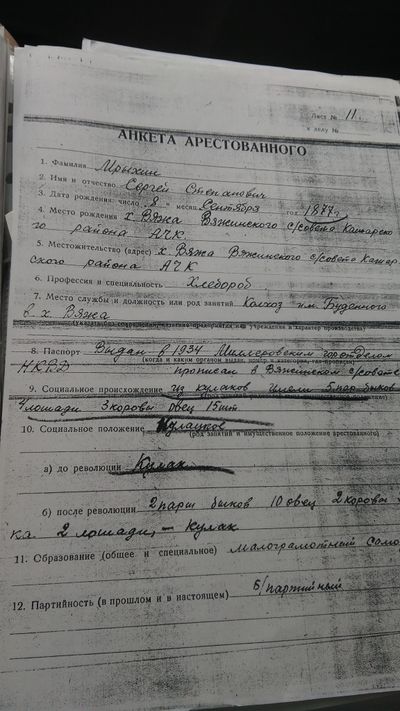 Лист № 11.
к делу №
АНКЕТА АРЕСТОВАННОГО
1. Фамилия Мрыхин
2. Имя и отчество Сергей Степанович
3. Дата рождения: число 8 месяц Сентября год 1877 г.
4. Место рождения х. Вяжа Вяжинского с/совета Кашарско
го района АЧК
5. Местожительство (адрес) х. Вяжа Вяжинского с/совета Кашар
ского района АЧК
6. Профессия и специальность Хлебороб
7. Место службы и должность или род занятий Колхоз им. Буденного
в х. Вяжа
8. Паспорт Выдан в 1934 Миллеровским горотделом
(когда и каким органом выдан, номер
НКВД прописан в Вяжинском с/совете
9. Социальное происхождение из кулаков имели 5 пар быков
4 лошади 3 коровы овец 15 шт.
10. Социальное положение Кулацкое
(род занятий и имущественное положение арестованного)
а) до революции Кулак
б) после революции 2 пары быков 10 овец 2 коровы
ка 2 лошади, – Кулак
11. Образование (общее и специальное) малограмотный само
12. Партийность (в прошлом и в настоящем) б/партийный